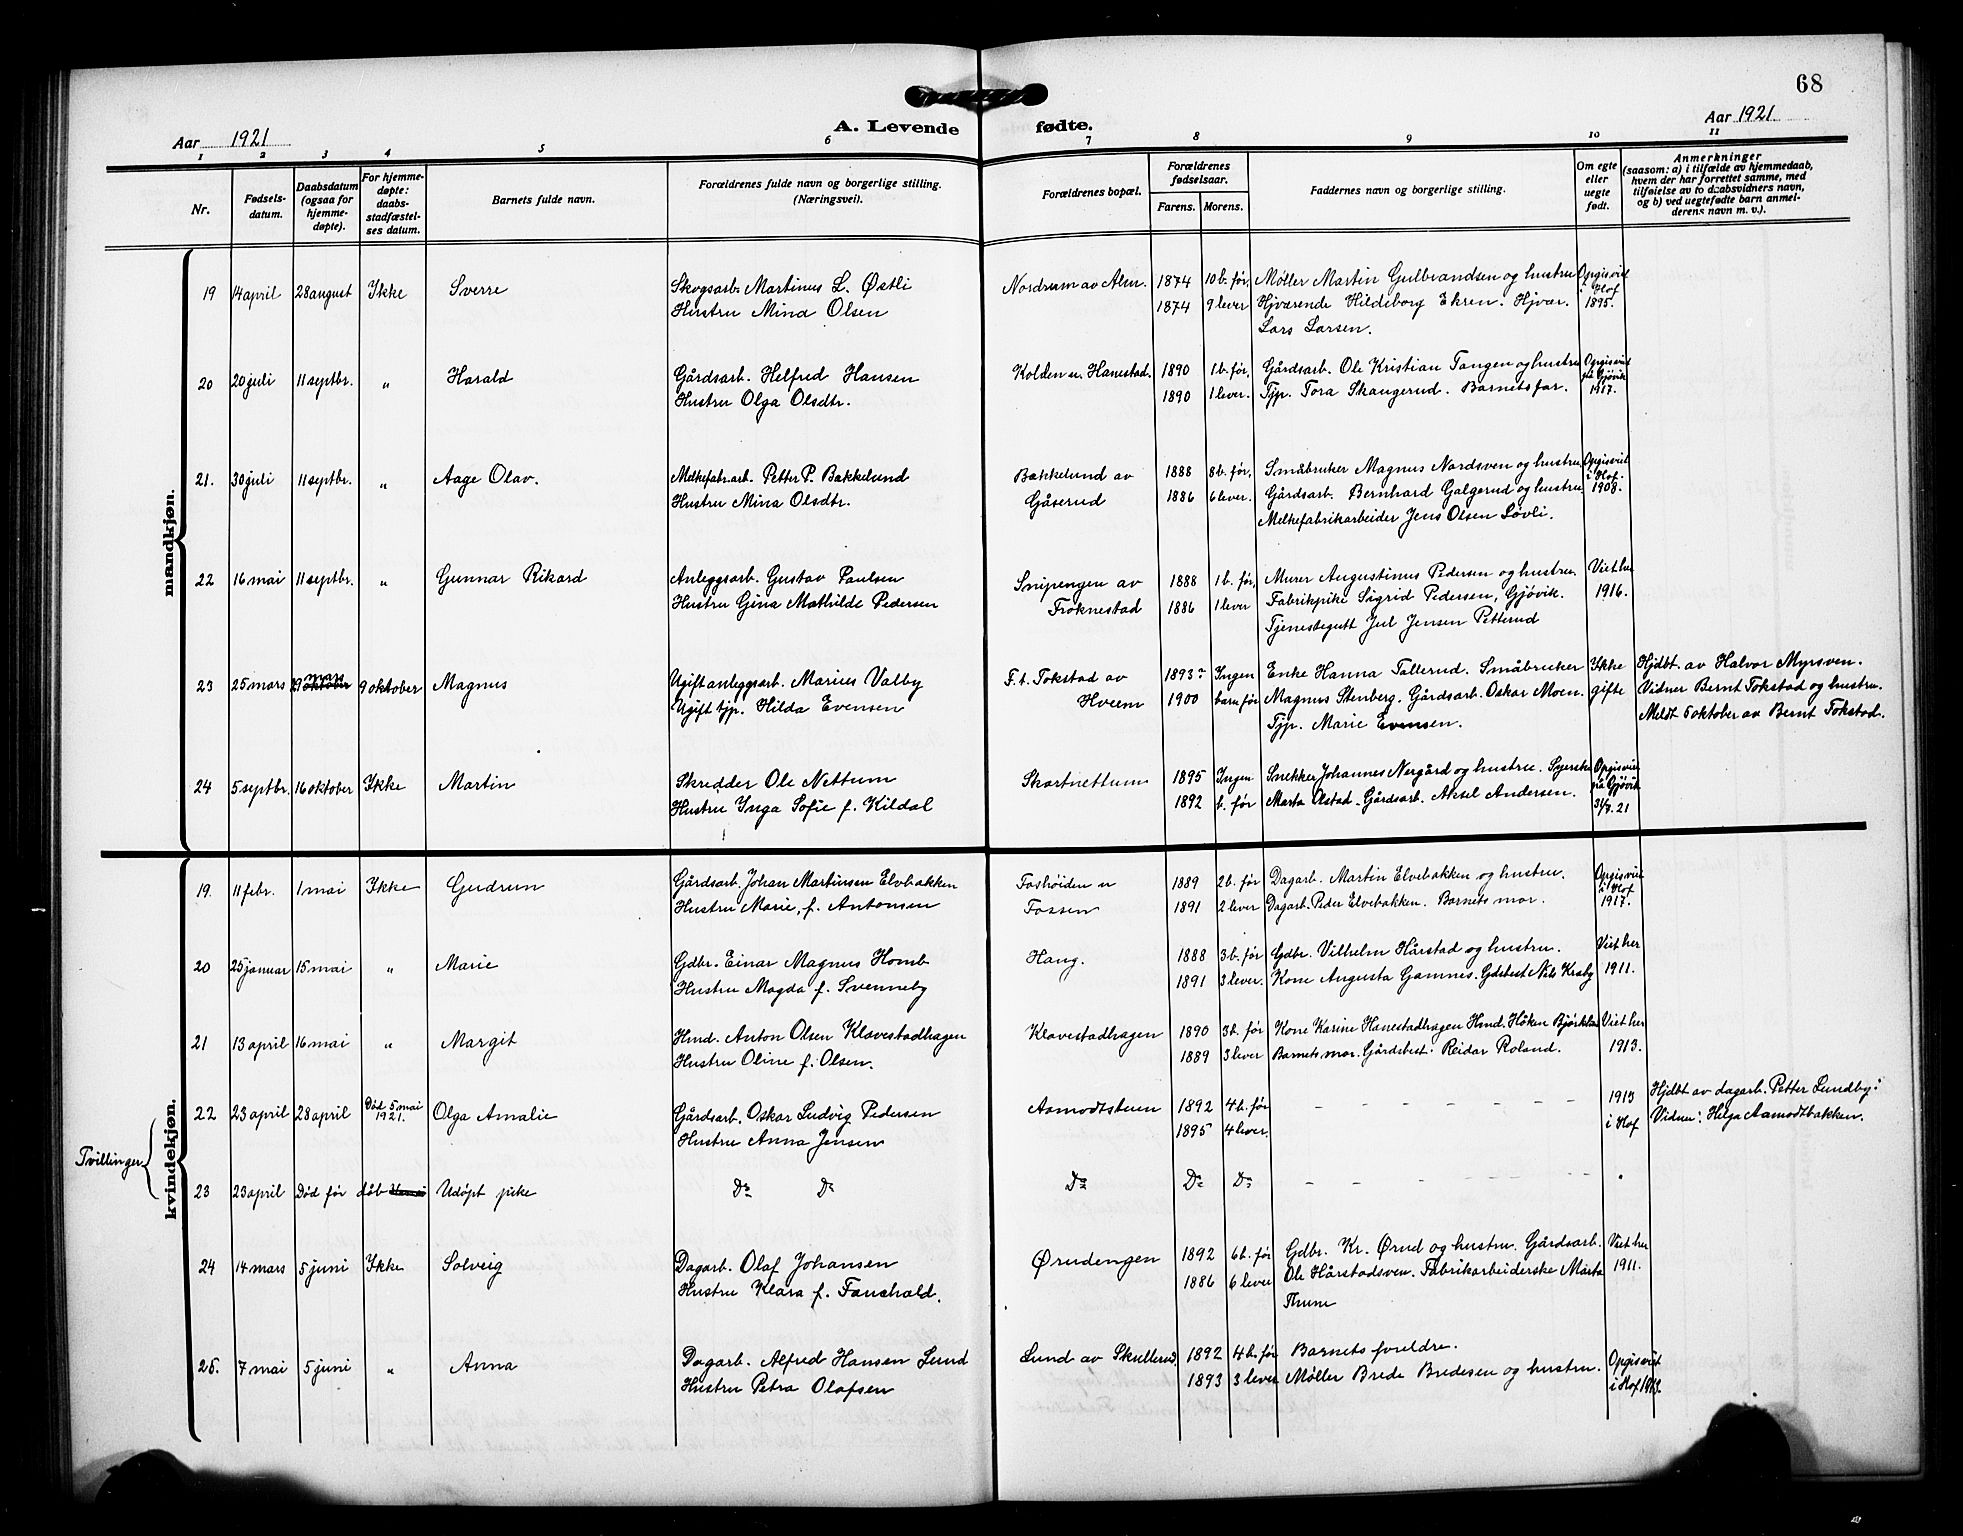 68
Aar 1921 A. Levende fødte. Aar 1921
1 2 3 4 5 6 7 8 9 10 11
Nr.
Fødsels-
datum.
Daabsdatum
(ogsaa for
hjemme-
døpte).
For hjemme-
døpte:
daabs-
stadfæstel-
ses datum.
Barnets fulde navn.
Forældrenes fulde navn og borgerlige stilling.
(Næringsvei).
Forældrenes bopæl.
Forældrenes
fødselsaar.
Farens. Morens.
Faddernes navn og borgerlige stilling.
Om egte
eller
uegte
født.
Anmerkninger
(saasom: a) i tilfælde av hjemmedaab,
hvem der har forrettet samme, med
tilføielse av to daabsvidners navn,
og b) ved uegtefødte barn anmel-
derens navn m. v.).
mandkjøn.
19 14 april 28 august Ikke Sverre Skogsarb. Martinus L. Østli Nordrum av Alm. 1874 10 b. før, Møller Martin Gulbrandsen og hustru Opgis viet
Hustru Mina Olsen 1874 9 lever Hjværende Hildeborg Ekren. Hjvær. i Hof
Lars Larsen. 1895.
20 20 juli 11 septbr. " Harald Gårdsarb. Helfred Hansen Kolden u. Hanestad. 1890 1 b. før, Gårdsarb. Ole Kristian Tangen og hustru Opgis viet
Hustru Olga Olsdtr. 1890 1 lever. Tjp. Tora Skangerud. Barnets far. på Gjøvik
1917.
21. 30 juli 11 septbr. " Aage Olav. Melkefabr.arb. Petter P. Bakkelund Bakkelund av 1888 8 b. før, Småbruker Magnus Nordsven og hustru Opgis viet
Hustru Mina Olsdtr. Gåserud 1886 6 lever. Gårdsarb. Bernhard Galgerud og hustru i Hof.
Melkefabrikarbeider Jens Olsen Løvli. 1908.
22 16 mai 11 septbr. " Gunnar Rikard Anleggsarb. Gustav Paulsen Snipengen av 1888 1 b. før, Murer Augustinus Pedersen og hustru. Viet her
Hustru Gina Mathilde Pedersen Froknestad 1886 1 lever Fabrikpike Sigrid Pedersen, Gjøvik. 1916.
Tjenestegutt Jul Jensen Petterud
23 25 mars 29 oktober mars 9 oktober Magnus Ugift anleggsarb. Marius Valby F. t. Tokstad av 1893? Ingen Enke Hanna Tallerud. Småbruker Ikke Hjdbt. av Halvor Myrsven.
Ugift tjp. Hilda Evensen Hveem 1900 barn før Magnus Stenberg. Gårdsarb. Oskar Moen. gifte Vidner Bernt Tokstad og hustru.
Tjp. Marie Evensen. Meldt 5 oktober av Bernt Tokstad.
24 5 septbr. 16 oktober Ikke Martin Skredder Ole Nettum Skartnettum 1895 Ingen Snekker Johannes Nergård og hustru. Syerske Opgis viet
Hustru Inga Sofie f. Kildal 1892 b. før Marta Olstad. Gårdsarb. Aksel Andersen. på Gjøvik
21
kvindekjøn.
19. 11 febr. 1 mai Ikke Gudrun Gårdsarb. Johan Martinsen Elvbakken Foshøiden u 1889 2 b. før Dagarb. Martin Elvebakken og hustru. Opgis viet
Hustru Marie, f. Antonsen Fossen 1891 2 lever Dagarb. Peder Elvebakken. Barnets mor. i Hof
1917.
20 25 januar 15 mai " Marie Gdbr. Einar Magnus Homb Haug. 1888 3 b. før Gdbr. Vilhelm Hårstad og hustru. Viet her
Hustru Magda f. Svenneby 1891 3 lever. Kone Augusta Gamnes. Gdsbest Nils Kraby 1911.
21 13 april 16 mai " Margit Hmd. Anton Olsen Klavestadhagen Klavestadhagen 1890 3 b. før Kone Karine Hanestadhagen Hmd. Håken Viet her
Hustru Oline f. Olsen. 1889 3 lever Barnets mor. Gårdsbest. Reidar Roland. 1913.
Tvillinger
22 23 april 28 april Død 5 mai 1921. Olga Amalie Gårdsarb. Oskar Ludvig Pedersen Aamodtstuen 1892 4 b. før - - - - - - 1913 Hjdbt av dagarb. Petter Lundby:
Hustru Anna Jensen 1895 4 lever. i Hof Vidne: Helga Aamodtbakken.
23 23 april Død før dåb Udøpt pike Do Do Do Do Do - - - - - -
24 14 mars 5 juni Ikke Solveig Dagarb. Olaf Johansen Ørudengen 1892 6 b. før Gdbr. Kr. Ørud og hustru. Gårdsarb. Viet her
Hustru Klara f. Fauchald. 1886 6 lever Ole Hårstadsven. Fabrikarbeiderske Marta 1911.
Thune
25. 7 mai 5 juni " Anna Dagarb. Alfred Hansen Lund Lund av Skullerud 1892 4 b. før Barnets foreldre. Opgis viet
Hustru Petra Olafsen 1893 3 lever Møller Brede Bredesen og hustru. i Hof 1913.